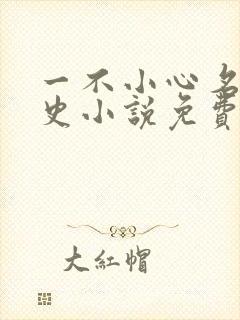 一不小心名
史小説免費
大紅帽